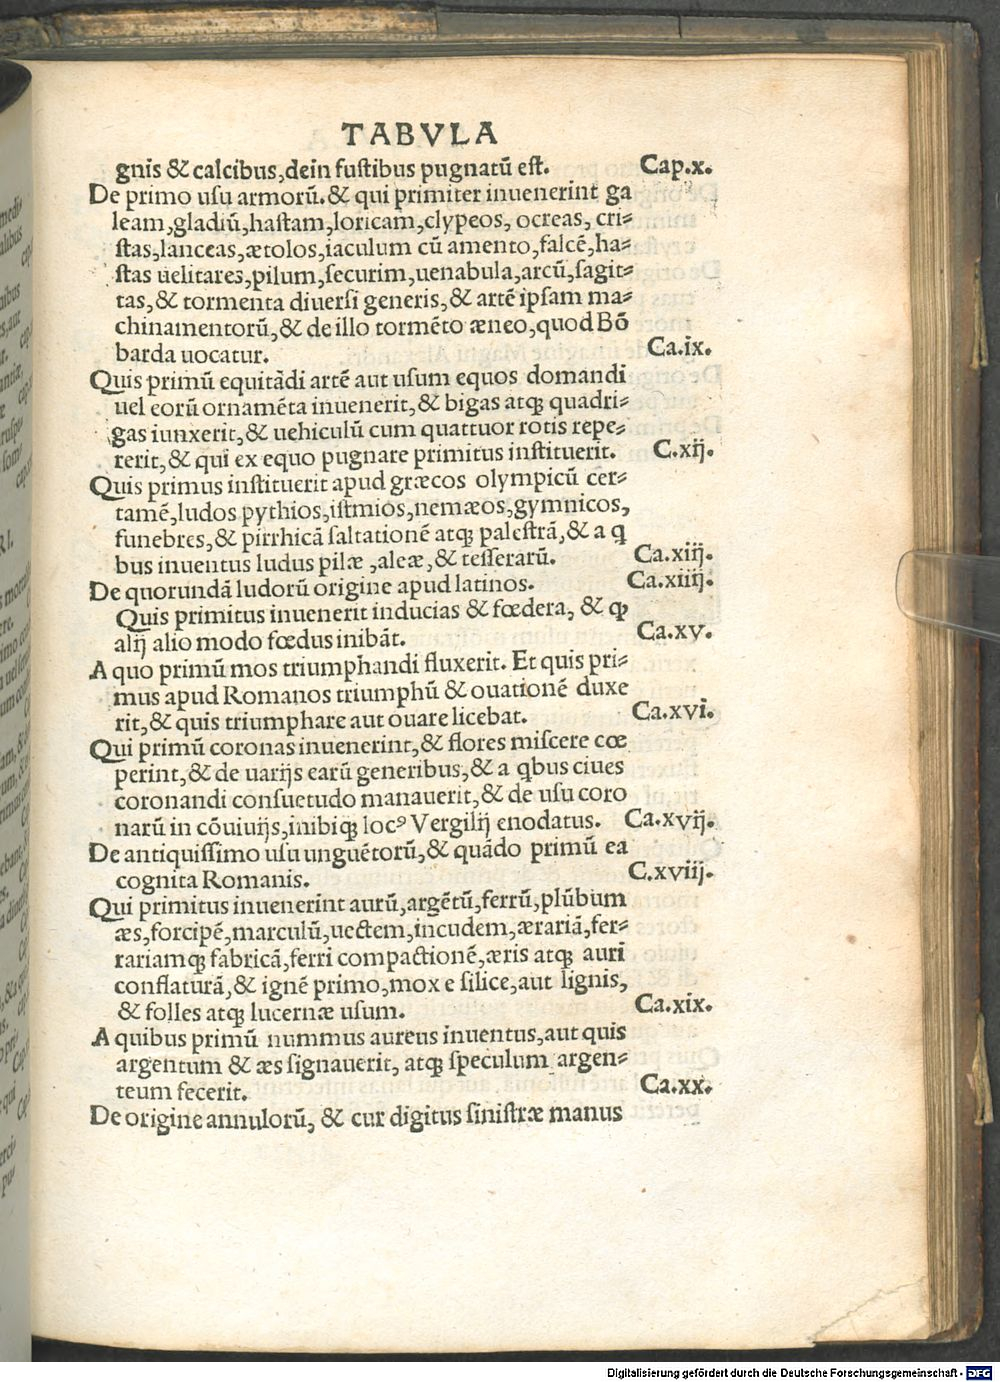 TABVLA
gnis & calcibus,dein fustibus pugnatū est. Cap.x.
De primo usu armorū.& qui primiter inuenerint ga
leam,gladiū,hastam,loricam,clypeos, ocreas, cri⸗
stas,lanceas,ætolos,iaculum cū amento,falcē,ha⸗
stas uelitares,pilum,securim,uenabula,arcū,sagit⸗
tas,& tormenta diuersi generis,& artē ipsam ma⸗
chinamentorū,& de illo tormēto æneo,quod Bō
barda uocatur. Ca.ix.
Quis primū equitādi artē aut usum equos domandi
uel eorū ornamēta inuenerit,& bigas atqꝫ quadri⸗
gas iunxerit,& uehiculū cum quattuor rotis repe⸗
rerit,& qui ex equo pugnare primitus instituerit. C.xij.
Quis primus instituerit apud græcos olympicū cer⸗
tamē,ludos pythios,istmios,nemæos,gymnicos,
funebres,& pirrhicā saltationē atqꝫ palestrā,& a q
bus inuentus ludus pilæ ,aleæ,& tesserarū. Ca.xiij.
De quorundā ludorū origine apud latinos. Ca.xiiij.
Quis primitus inuenerit inducias & fœdera, & ꝙ
alij alio modo fœdus inibāt. Ca.xv.
A quo primū mos triumphandi fluxerit. Et quis pri⸗
mus apud Romanos triumphū & ouationē duxe
rit,& quis triumphare aut ouare licebat. Ca.xvi.
Qui primū coronas inuenerint,& flores miscere cœ
perint,& de uarijs earū generibus,& a qbus ciues
coronandi consuetudo manauerit,& de usu coro
narū in cōuiuijs,inibiqꝫ locꝰ Vergilij enodatus. Ca.xvij.
De antiquissimo usu unguētorū,& quādo primū ea
cognita Romanis. C.xviij.
Qui primitus inuenerint aurū,argētū,ferrū,plūbum
æs,forcipē,marculū,uectem,incudem,ærariā,fer⸗
rariamqꝫ fabricā,ferri compactionē,æris atqꝫ auri
conflaturā,& ignē primo,mox e silice,aut lignis,
& folles atqꝫ lucernæ usum. Ca.xix.
A quibus primū nummus aureus inuentus,aut quis
argentum & æs signauerit, atqꝫ speculum argen⸗
teum fecerit. Ca.xx.
De origine annulorū, & cur digitus sinistræ manus
Digitalisierung gefördert durch die Deutsche Forschungsgemeinschaft - DFG